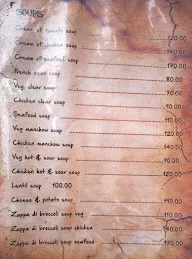 SOUPS
Cream of tomato soup 120.00
Cream of chicken soup 180.00
Cream of seafood soup 140.00
French onion soup 190.00
Veg clear soup 80.00
Chicken clear soup 90.00
Seafood soup 110.00
Veg manchow soup 120.00
Chicken manchow soup 140.00
Veg hot & sour soup 110.00
Chicken hot & sour soup 120.00
Lentil soup 100.00
Cheese & potato soup 110.00
Zuppa di broccoli soup veg 110.00
Zuppa di broccoli soup chicken 140.00
Zuppa di broccoli soup seafood 170.00